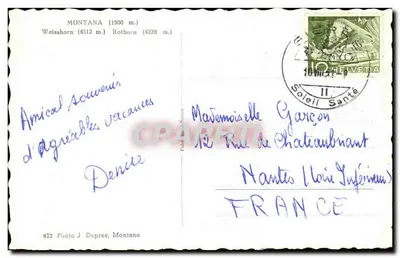 MONTANA (1500 m.)
Weisshorn (4512 m.) Rothorn (4228 m.)
Amical souvenir
d'agréables vacances
Denise
10
HELVETIA
II
Soleil Santé
Mademoiselle Garçon
12 Rue de Chateaubriant
Nantes (Loire Inférieure)
FRANCE
CPARAMA
672 Photo J. Deprez, Montana